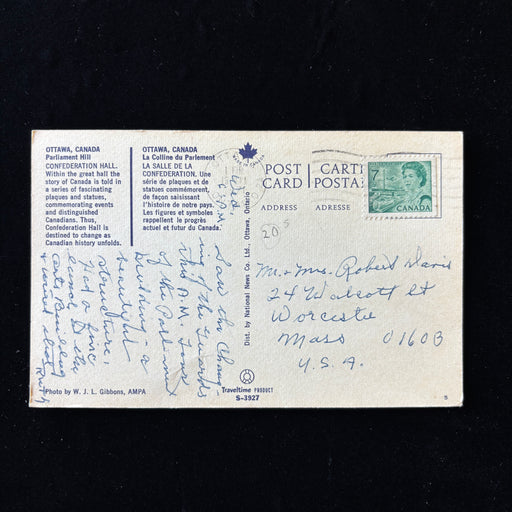 OTTAWA, CANADA
Parliament Hill
CONFEDERATION HALL.
Within the great hall the
story of Canada is told in
a series of fascinating
plaques and statues,
commemorating events
and distinguished
Canadians. Thus,
Confederation Hall is
destined to change as
Canadian history unfolds.
OTTAWA, CANADA
La Colline du Parlement
LA SALLE DE LA
CONFEDERATION. Une
série de plaques et de
statues commémorent,
de façon saisissant
l'histoire de notre pays.
Les figures et symboles
rappellent le progrès
actuel et futur du Canada.
Wed.
Saw the Chang-
ing of the Guards
this A.M. Tour
of the Parliament
Building - a
beautiful
structure,
Had a fine
Ruth
Photo by W. J. L. Gibbons, AMPA
Dist. by National News Co. Ltd., Ottawa, Ontario
Traveltime PRODUCT
S-3927
POST
CARD
CARTE
POSTA
ADDRESS
ADRESSE
7
CANADA
20.5
Mr. + Mrs. Robert Davis
24 Walcott St
Worcester
Mass 01603
U.S.A.
5